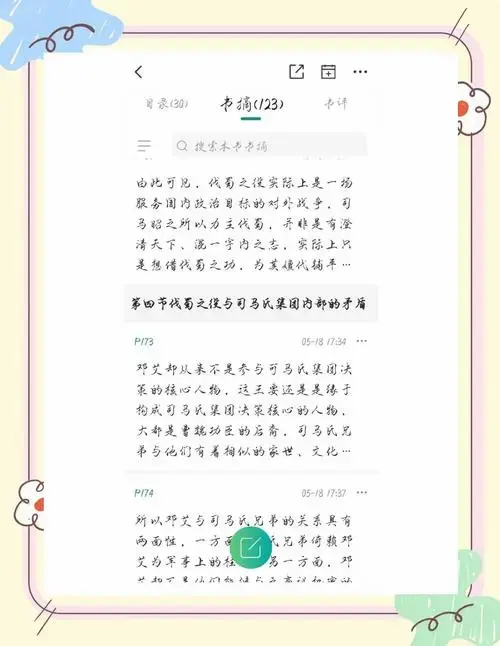 目录(30) 书摘(123) 书评
搜索本书书摘
由此可见，伐蜀之役实际上是一场
服务国内政治目标的对外战争，司
马昭之所以力主伐蜀，并非是有澄
清天下、混一宇内之志，实际上只
是想借伐蜀之功，为其嬗代铺平…
第四节伐蜀之役与司马氏集团内部的矛盾
P173 05-18 17:34
邓艾却从来不是参与司马氏集团决
策的核心人物，这主要还是是缘于
构成司马氏集团决策核心的人物，
大都是曹魏功臣的后裔，司马氏兄
弟与他们有着相似的家世、文化…
P174 05-18 17:37
所以邓艾与司马氏兄弟的关系具有
两面性，一方面 氏兄弟倚赖邓
艾为军事上的 另一方面，邓